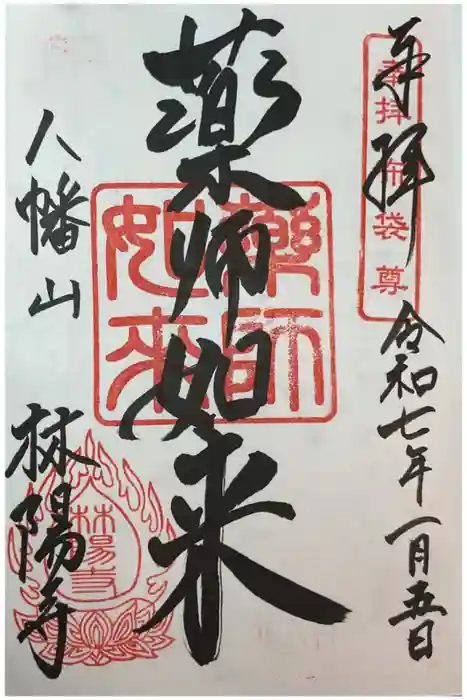 奉拝
奉拝布袋尊
令和七年一月五日
薬師如来
薬師如来
八幡山
林陽寺
林陽寺